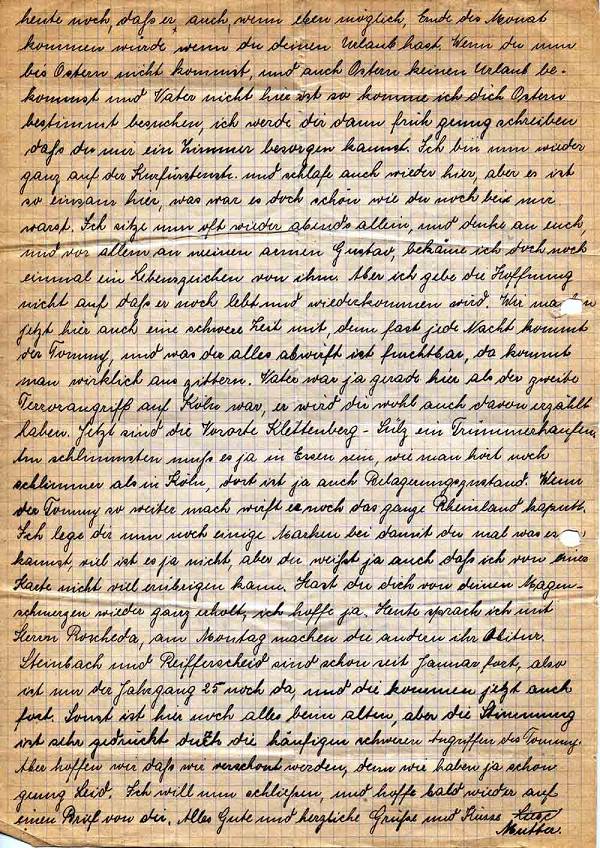 heute noch, daſs er auch, wenn eben möglich, Ende des Monat
kommen würde wenn du deinen Urlaub hast. Wenn du nun
bis Ostern nicht kommst, und auch Ostern keinen Urlaub be-
kommst und Vater nicht hier ist so komme ich dich Ostern
bestimmt besuchen, ich werde dir dann früh genug schreiben
daſs du mir ein Zimmer besorgen kannst. Ich bin nun wieder
ganz auf der Kurfürstenstr. und schlafe auch wieder hier, aber es ist
so einsam hier, was war es doch schön wie du noch bei mir
warst. Ich sitze nun oft wieder abends allein, und denke an euch,
und vor allem an meinen armen Gustav, bekäme ich doch noch
einmal ein Lebenszeichen von ihm. Aber ich gebe die Hoffnung
nicht auf daſs er noch lebt und wiederkommen wird. Wir
jetzt hier auch eine schwere Zeit mit, denn fast jede Nacht kommt
der Tommy, und was der alles abwirft ist fruchtbar, da kommt
man wirklich aus zittern. Vater war ja gerade hier als der zweite
Terrorangriff auf Köln war, er wird dir wohl auch davon erzählt
haben. Jetzt sind die Vororte Klettenberg - Sülz ein Trümmerhaufen.
Am schlimmsten muſs es ja in Essen sein, wie man hört noch
schlimmer als in Köln, dort ist ja auch Belagerungszustand. Wenn
der Tommy so weiter mach wirft er noch das ganze Rheinland kaputt.
Ich lege dir nun noch einige Marken bei damit du mal was
kannst, viel ist es ja nicht, aber du weiſst ja auch daſs ich von einer
Karte nicht viel erübrigen kann. Hast du dich von deinen Magen-
schmerzen wieder ganz erholt, ich hoffe ja. Heute sprach ich mit
Herrn Roscheda, am Montag machen die andern ihr Abitur.
Steinbach und Reifferscheid sind schon seit Januar fort, also
ist nur der Jahrgang 25 noch da, und die kommen jetzt auch
fort. Sonst ist hier noch alles beim alten, aber die Stimmung
ist sehr gedrückt durch die häufigen schweren Angriffen des Tommy.
Aber hoffen wir daſs wir verschont werden, denn wir haben ja schon
genug Leid. Ich will nun schlieſsen, und hoffe bald wieder auf
einen Brief von dir. Alles Gute und herzliche Grüſse und Küsse
Mutter.